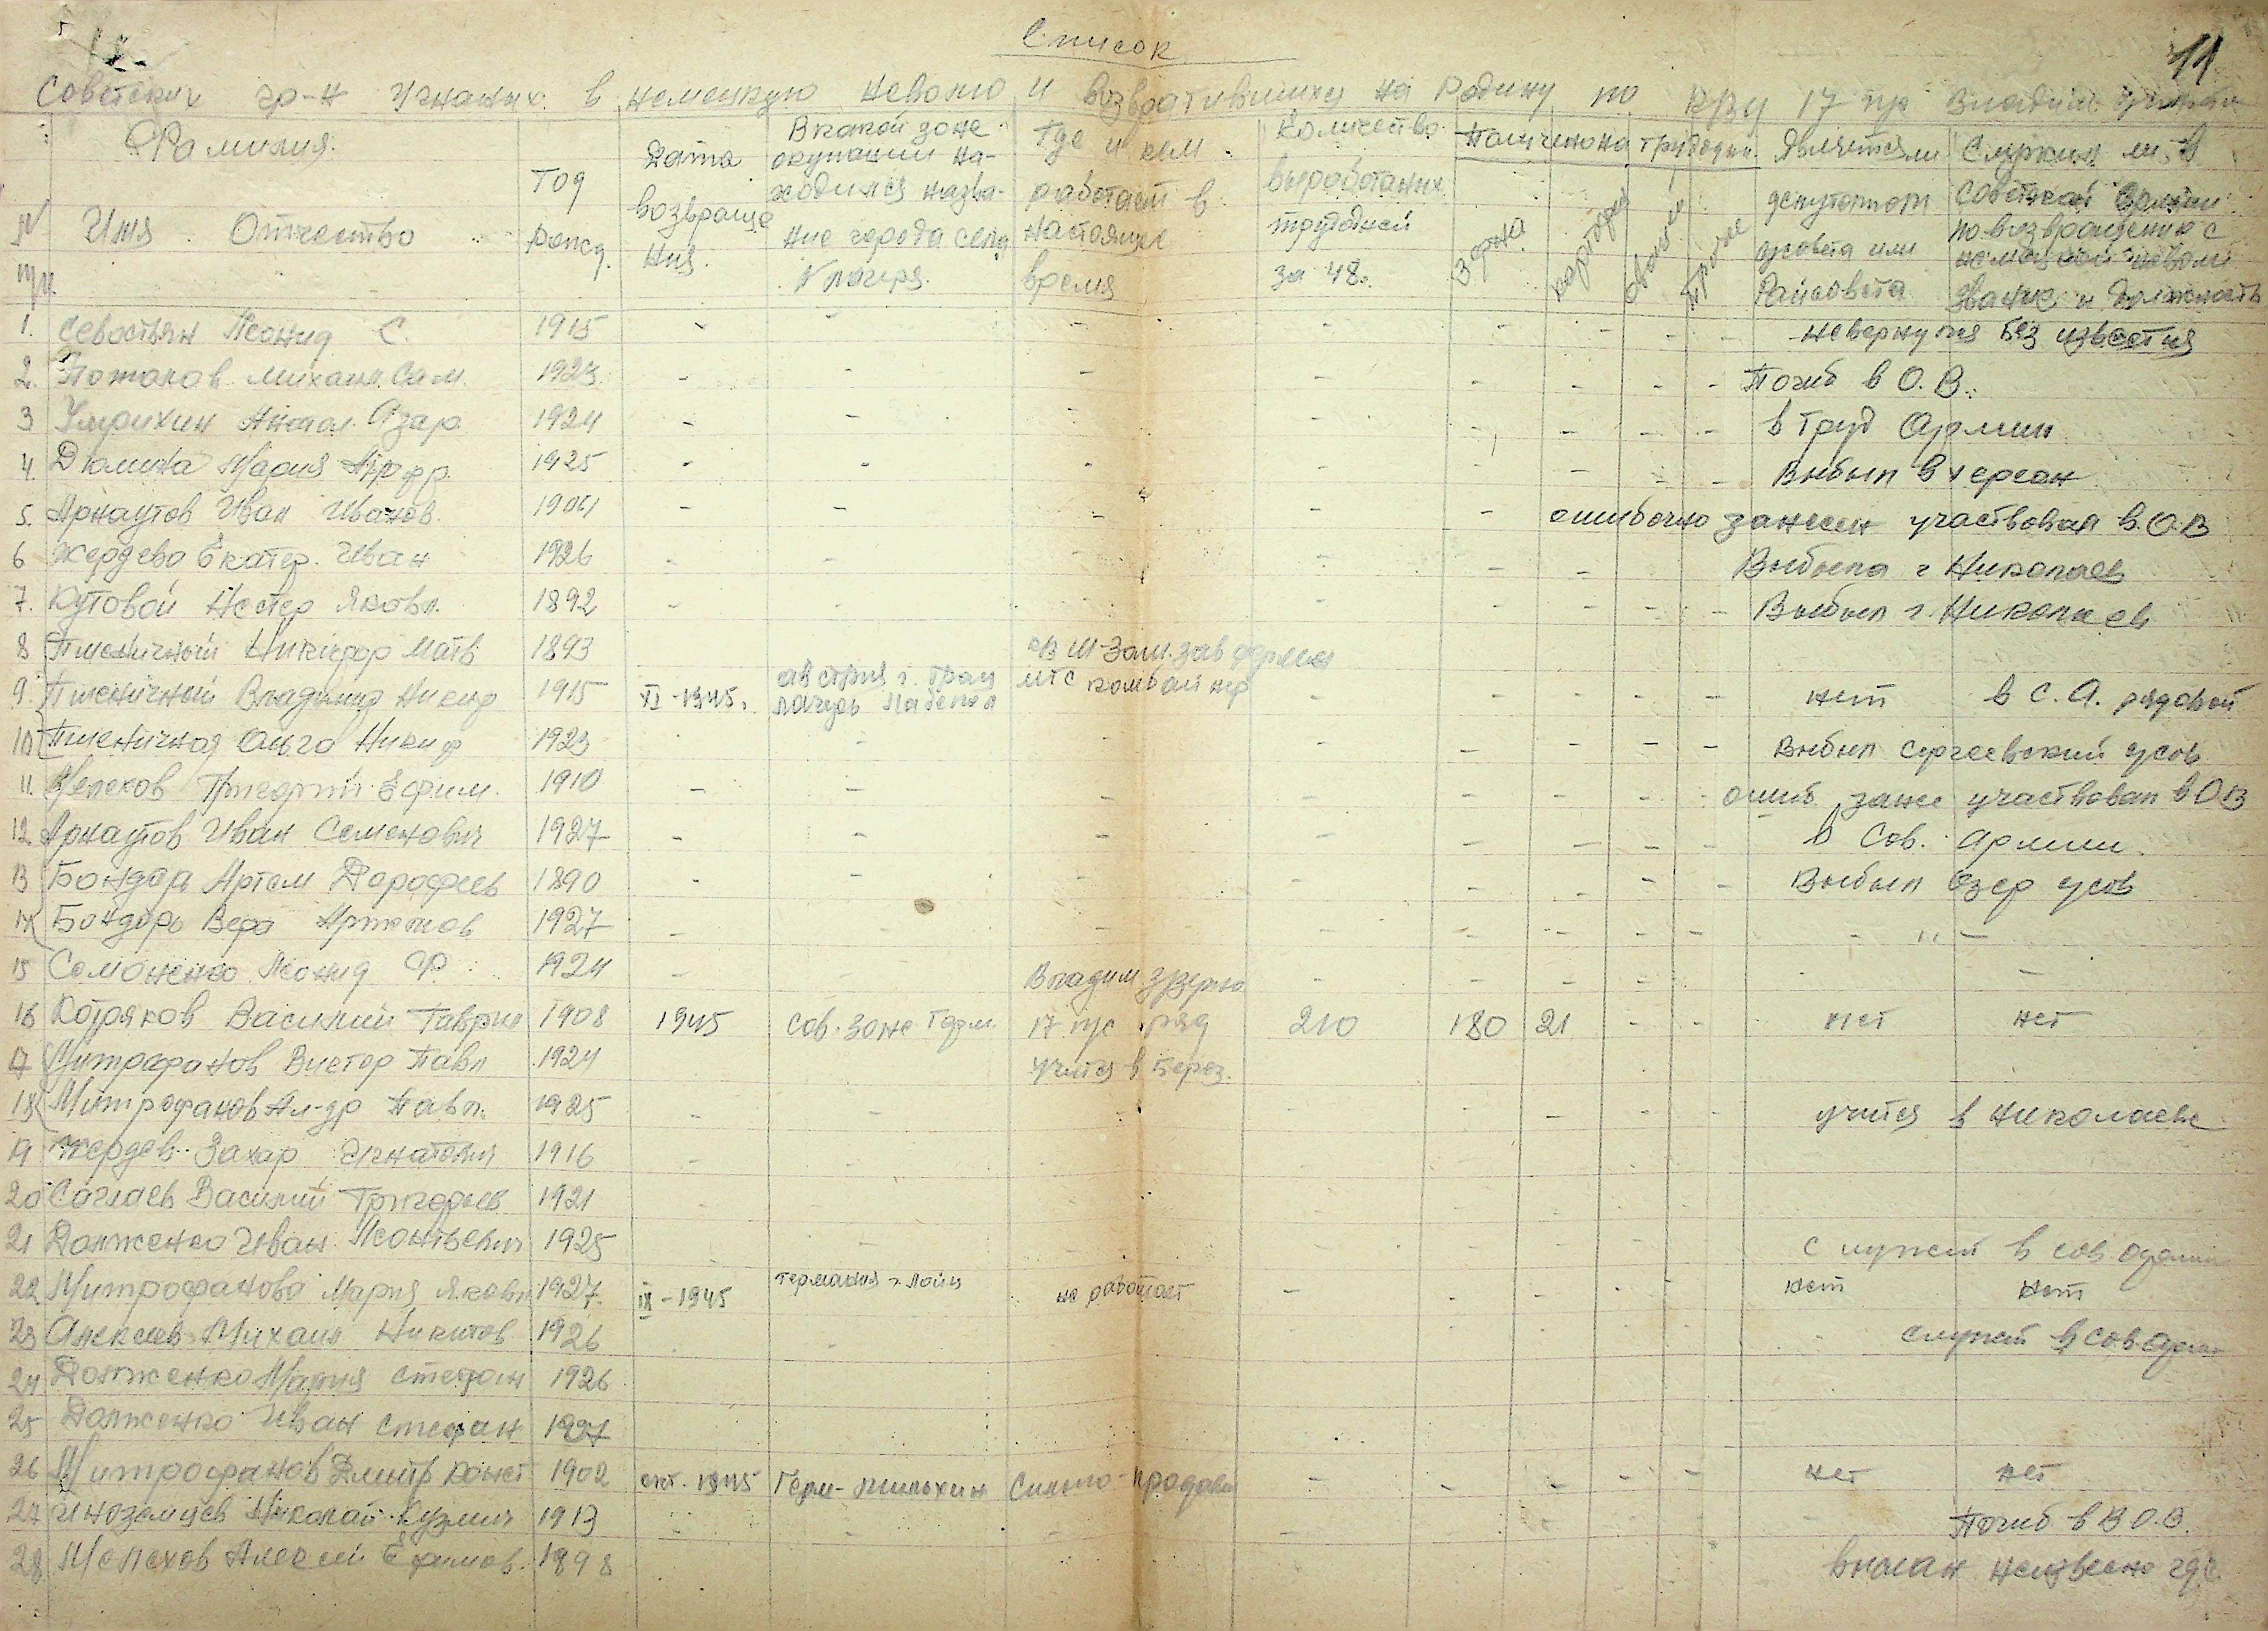 11
Список
Советских гр-н угнаных в немецкую неволю и возвратившихся на Родину по к/зу 17 пс Владим
N п/п
Фамилия Имя Отчество
Год рожд.
Дата возвраще ния.
В какой зоне окупации на- ходился назва- ние города села N лагеря.
Где и кем работает в настоящее время
Количество выработаных трудодней за 48г.
Получено на трудодни
Зерна
картофел
овощей
Прочие
Является ли депутатом с/совета или Райсовета
Служил ли в Советской Армии по возвращению с немецкой неволи звание и должность
1. Севостьян Леонид С. 1915 - - - - - - - - невернулся без известия
2. Потапов Михаил Сам. 1923 - - - - - - - - Погиб в О.В.
3 Умрихин Анатол. Азар. 1924 - - - - - - - - в Труд Армии
4. Дюмина Мария 1925 - - - - - - - - Выбыл в херсон
5. Арнаутов Иван Иванов. 1904 - - - - - ошибочно занесен участвовал в.О.В
6 Жердева Екатер. Иван 1926 - - - - - - Выбыла г Николаев
7. Кутовой Нестер Яковл. 1892 - - - - - - - - Выбыл г. Николаев
8 Пшеничный Никифор Матв 1893 зав фермой
9. Пшеничный Владимир Никиф 1915 XI-1945. австрия г. Грац лагерь МТС комбайнер - - - - - нет в С.А. рядовой
10 Пшеничная Ольга Никиф 1923 - - - - - - - - Выбыл Сергеевский с/сов
11. Мелехов Григорий Ефим. 1910 - - - - - - - - ошиб. зане участвовал в О В
12 Арнаутов Иван Семенович 1927 - - - - - - - - В Сов. Армии.
13 Бондарь Артем Дорофеев 1890 - - - - - - - - Выбыл Озер с/сов
14 Бондарь Вера Артемов 1927 - - - - - - - - - " -
15 Леонид Ф. 1924 - - Владим - - - - - -
16 Котряков Василий Гаврил 1908 1945 Сов. зоне Герм. 17 п/с ряд 210 180 21 - - нет нет
17 Митрофанов Виктор Павл 1924 учится в Берез.
18 Митрофанов Ал-др Павл. 1925 - - - - - - - - учится в Николаеве
19 Жердев Захар Игнатович 1916
20 Василий Григорьев 1921
21 Долженко Иван Леонтьевич 1925 служит в сов армии
22 Митрофанова Мария Яковл 1927 IX-1945 германия г. не работает - - - - - нет нет
23 Алексеев Михаил Никитов 1926 служит в Сов. Арм
24 Долженко Мария Стефан 1926
25 Долженко Иван Стефан 1927
26 Митрофанов Дмитр Конст 1902 окт. 1945 Герм- - - - - - нет нет
27 Иноземцев Николай Кузмич 1913 - - - - Погиб в В О.В.
28 Мелехов Алексей Ефимов. 1898 выслан неизвесно где